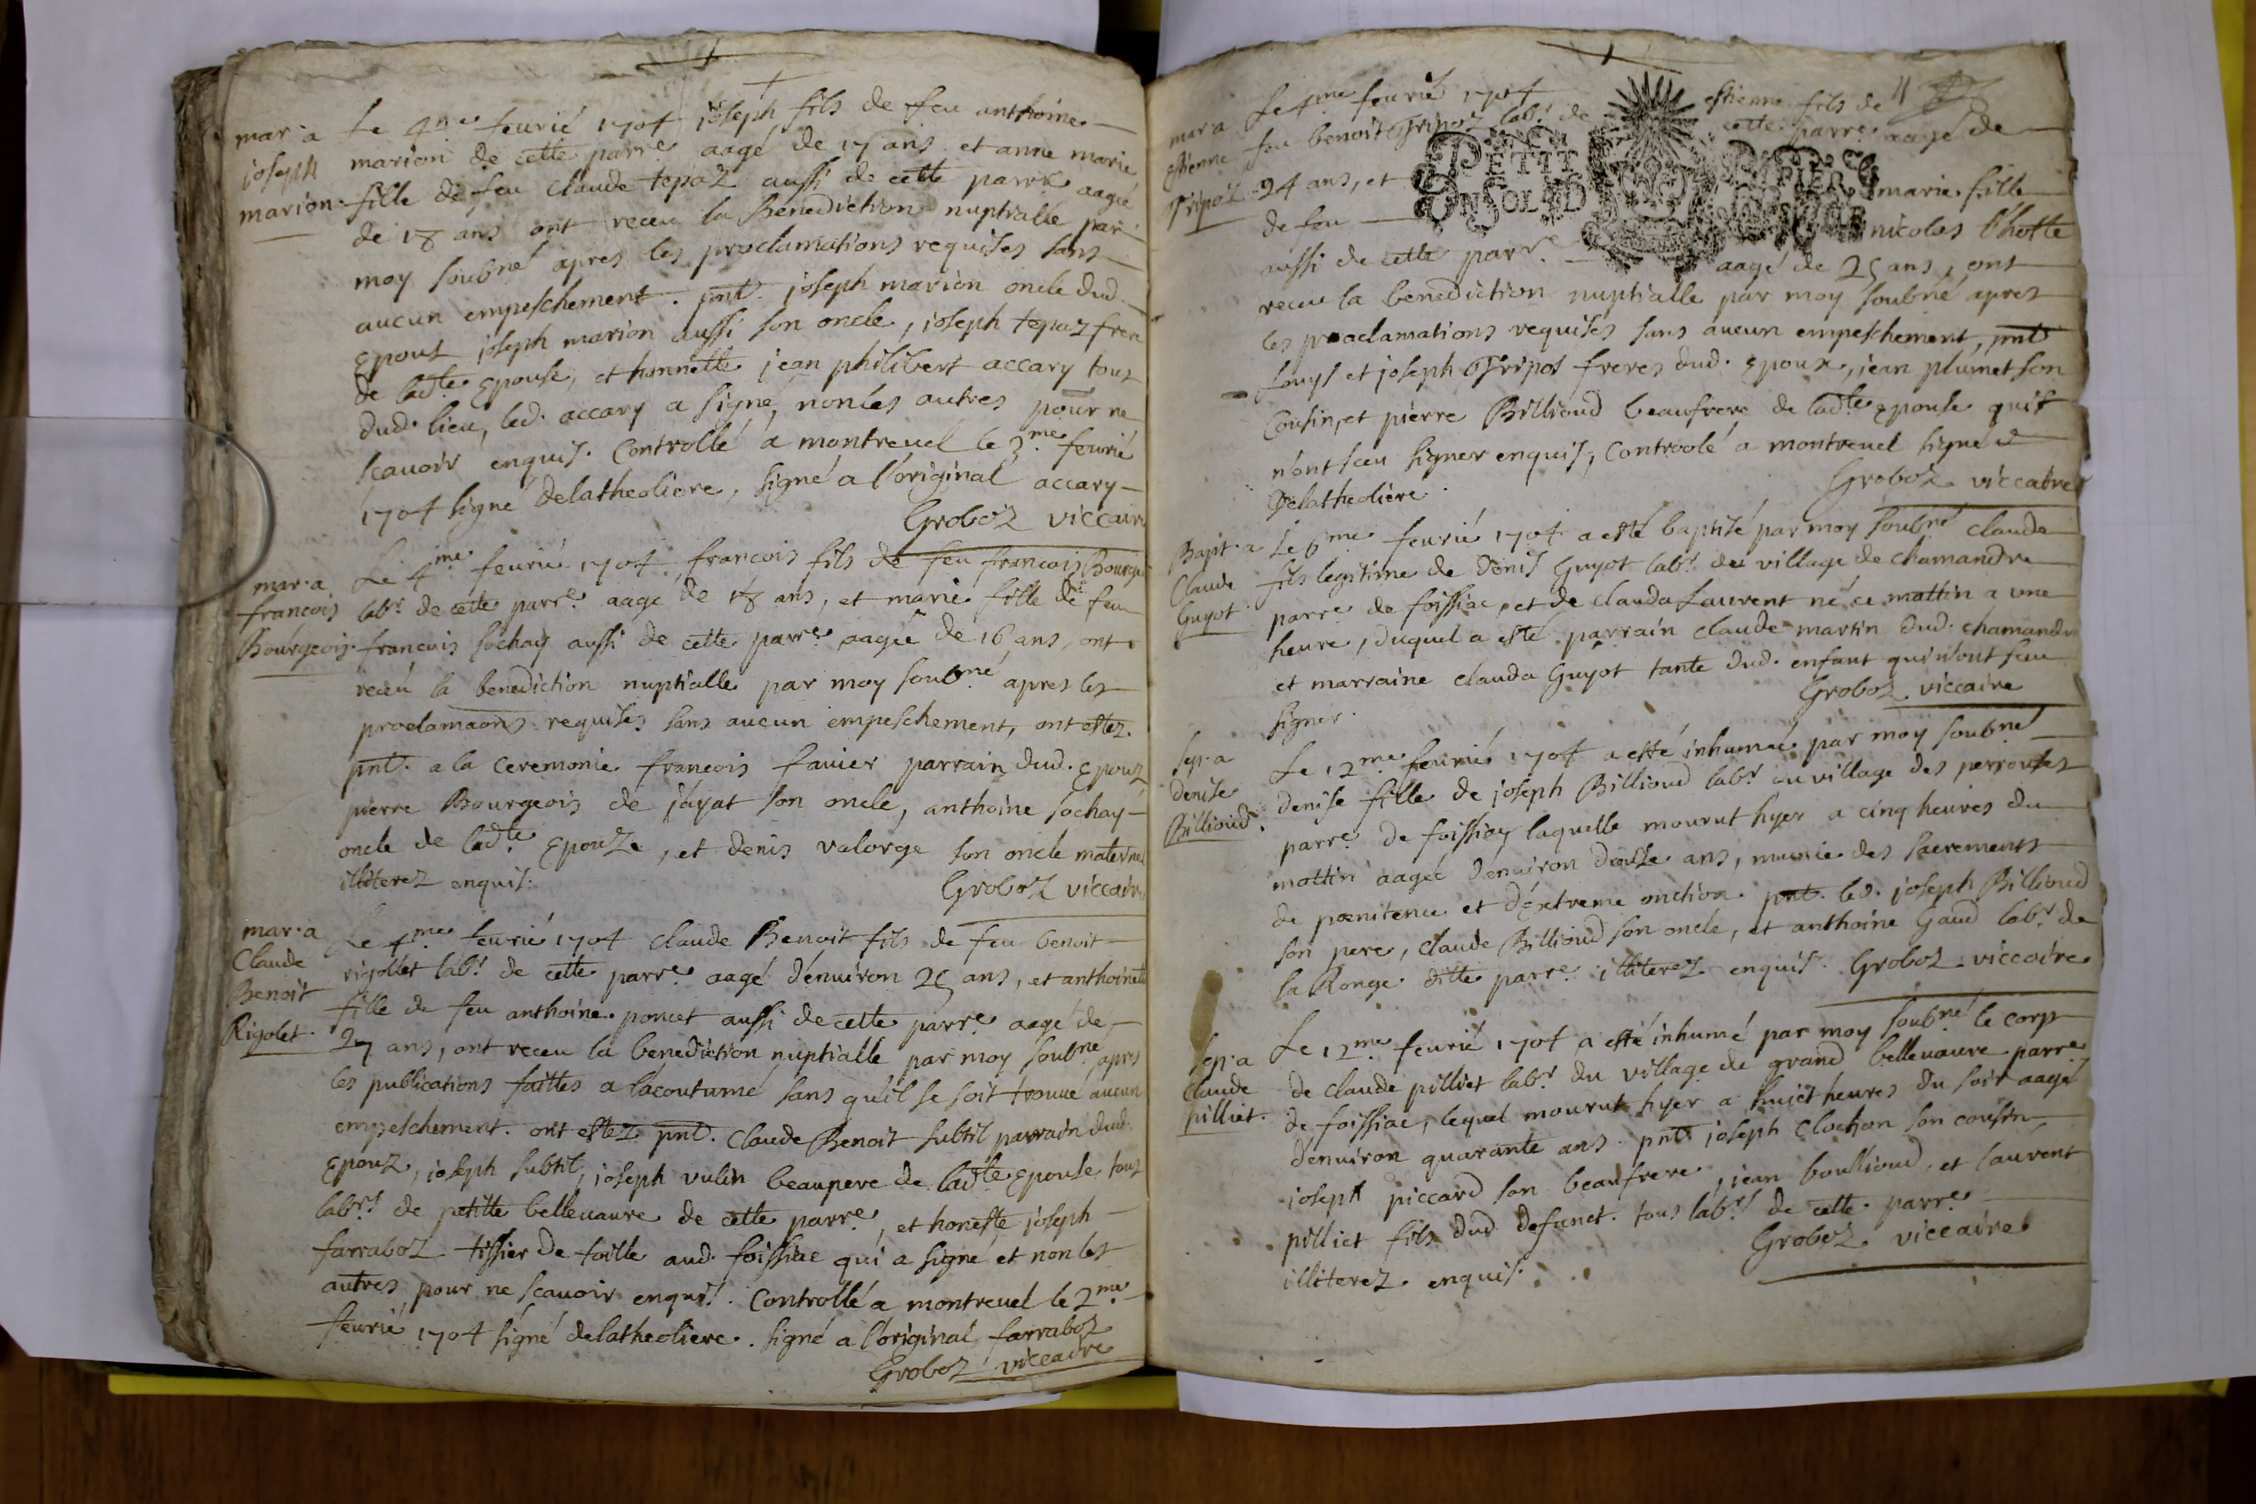 mar. a
joseph
marion.
Le 4me feurié 1704 joseph fils de feu anthoine
marion de cette parre aagé de 17 ans et anne marie
fille de feu Claude tepaz aussi de cette parre aagée
de 18 ans ont receu la Benediction nuptialle par
moy soubné apres les proclamations requises sans
aucun empeschement. pnt. joseph marion oncle dud.
Epoux joseph marion aussi son oncle, joseph tepaz frere
de ladte Epouse, et honnette jean philibert accary tous
dud. lieu, led. accary a signé, non les autres pour ne
scauoir enquis. Controllé a montreuel le 3me feurié
1704 signé delatheoliere, signé a l'original accary
Groboz viccaire
mar. a
francois
Bourgeois.
Le 4me feurié 1704 francois fils de feu francois Bourgeois
labr. de cette parre aagé de 18 ans, et marie fille de feu
francois sochay aussi de cette parre aagée de 16 ans, ont
receu la benediction nuptialle par moy soubné apres les
proclamaons requises sans aucun empeschement, ont estez
pnt. a la ceremonie francois fauier parrain dud. Epoux
pierre Bourgeois de jayat son oncle, anthoine sochay
oncle de ladte Epouze, et denis valorge son oncle maternel
illiterez enquis.
Groboz viccaire
mar. a
Claude
Benoit
Rigolet.
Le 4me feurié 1704 Claude Benoit fils de feu benoit
rigollet labr. de cette parre aagé d'enuiron 25 ans, et anthoinette
fille de feu anthoine poncet aussi de cette parre aagé de
27 ans, ont receu la benediction nuptialle par moy soubné apres
les publications faittes a lacoutumé sans qu'il se soit trouué aucun
empeschement. ont estez pnt. Claude Benoit subtil parrain dud.
Epoux, joseph subtil, joseph vulin beaupere de ladte Epouse tous
labrs. de petitte belleuaure de cette parre, et honeste joseph
farraboz tissier de toille aud. foissiac qui a signé et non les
autres pour ne scauoir enquis. Controllé a montreuel le 2me
feurié 1704 signé delatheoliere. signé a l'original farraboz
Groboz viccaire
11
mar. a
estienne
Tripoz
Le 4me feurié 1704 estienne fils de
feu benoit Tripoz labr. de cette parre aagé de
24 ans, et marie fille
de feu nicolas l'hoste
PETIT PAPIER
aussi de cette parre aagé de 25 ans, ont
receu la benediction nuptialle par moy soubné apres
les proclamations requises sans aucun empeschement, pnt
Louys et joseph Tripos freres dud. Epoux, jean plumet son
Cousin, et pierre Billioud beaufrere de ladte Epouse qui
n'ont sceu signer enquis, Controolé a montreuel signé
Delatheoliere.
Groboz viccaire
Bapt. a
Claude
Guyot
Le 6me feurié 1704 a esté baptisé par moy soubné claude
fils legitime de Denis Guyot labr. du village de chamandre
parre de foissiac, et de clauda Laurent né ce mattin a une
heure, duquel a esté parrain claude martin dud. chamandre
et marraine clauda Guyot tante dud. enfant qui n'ont sceu
signer.
Groboz viccaire
Sep. a
Denise
Billioud.
Le 12me feurié 1704 a esté inhumée par moy soubné
Denise fille de joseph Billioud labr. au village des perrouses
parre de foissiac laquelle mourut hyer a cinq heures du
mattin aagée d'enuiron douze ans, munie des sacrements
de pœnitence et d'extreme onction. pnt. led. joseph Billioud
son pere, claude Billioud son oncle, et anthoine Gaud labr. de
la Ronge ditte parre illiterez enquis. Groboz viccaire
Sep. a
Claude
pilliet.
Le 12me feurié 1704 a esté inhumé par moy soubné le corp
de claude pilliet labr. du village de grand belleuaure parre
de foissiac, lequel mourut hyer a huict heures du soir aagé
d'enuiron quarante ans. pnts joseph Clochon son cousin,
joseph piccard son beaufrere, jean boullioud, et laurent
pilliet fils dud defunct. tous labrs. de cette parre
illiterez enquis.
Groboz viccaire